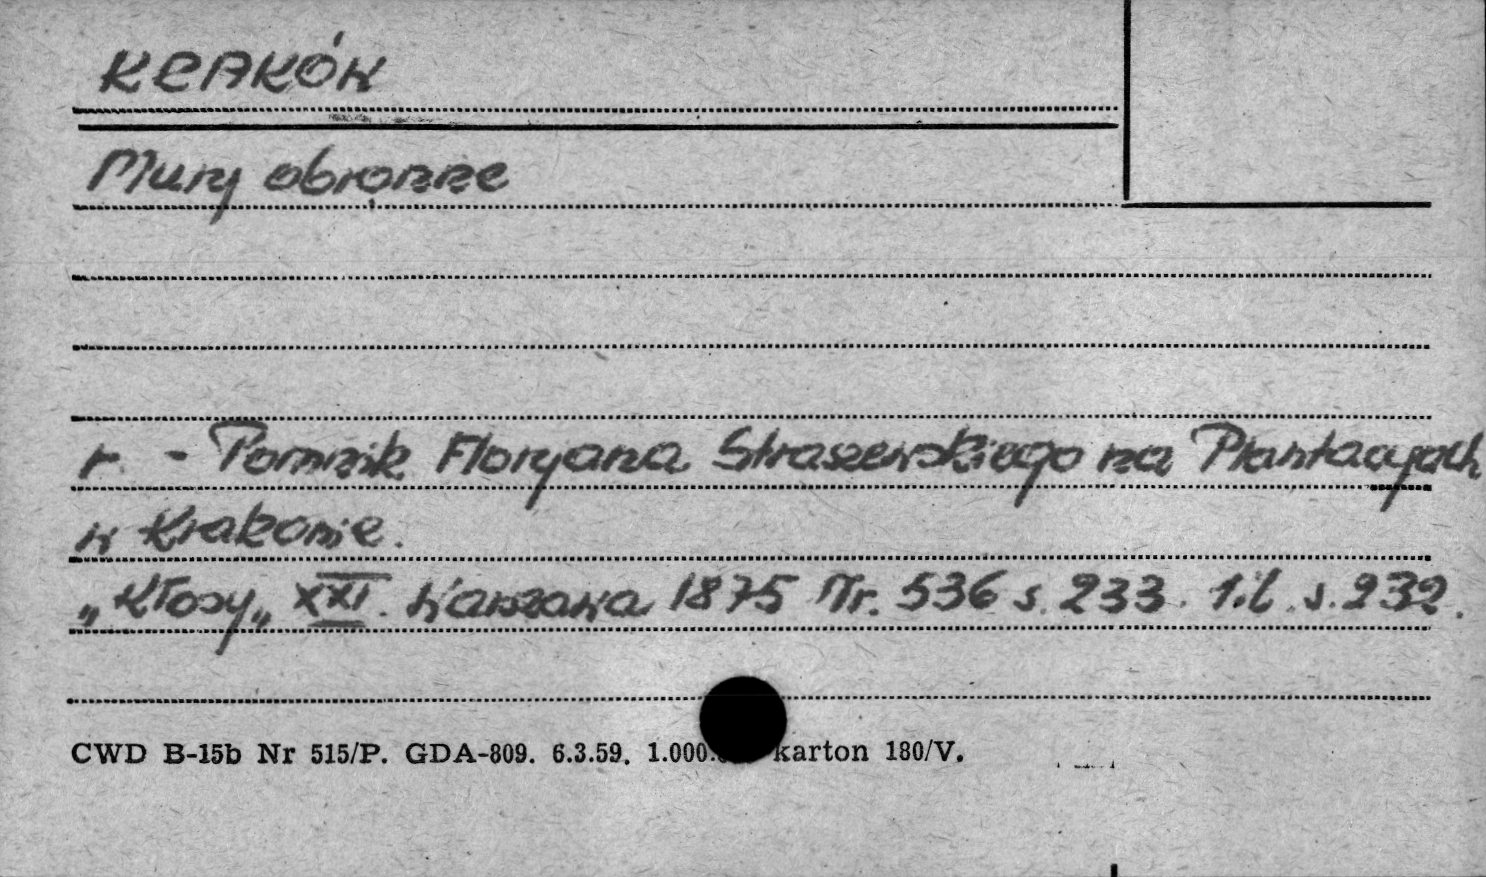 KRAKÓW
Mury obronne
r. - Pomnik Floryana Straszewskiego na Plantacyach
w Krakowie.
„Kłosy„ XXI. Warszawa 1875 Nr. 536 s. 233. 1.il. s. 232.
CWD B-15b Nr 515/P. GDA-809. 6.3.59. 1.000. karton 180/V.